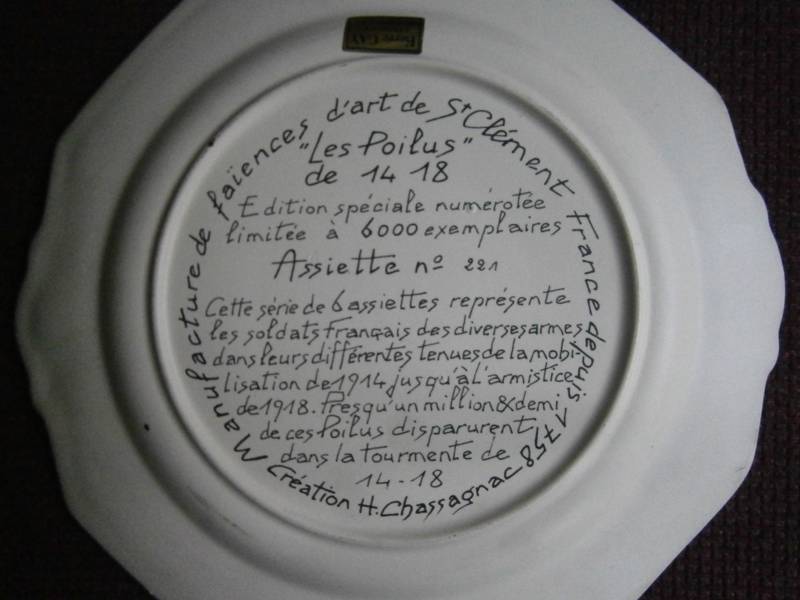 Manufacture de faïences d'art de St Clément France depuis 1758
"Les Poilus"
de 14 18
Edition spéciale numérotée
limitée à 6000 exemplaires
Assiette nº 221
Cette série de 6 assiettes représente
les soldats français des diverses armes
dans leurs différentes tenues de la mobi-
lisation de 1914 jusqu'à l'armistice
de 1918. Presqu'un million & demi
de ces Poilus disparurent
dans la tourmente de
14-18
Création H. Chassagnac